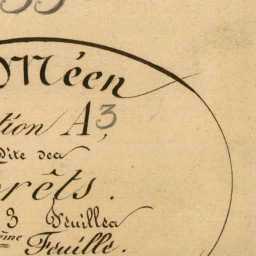 Méen
tion A3
Dite des
rêts.
3 Feuilles
ème Feuille.